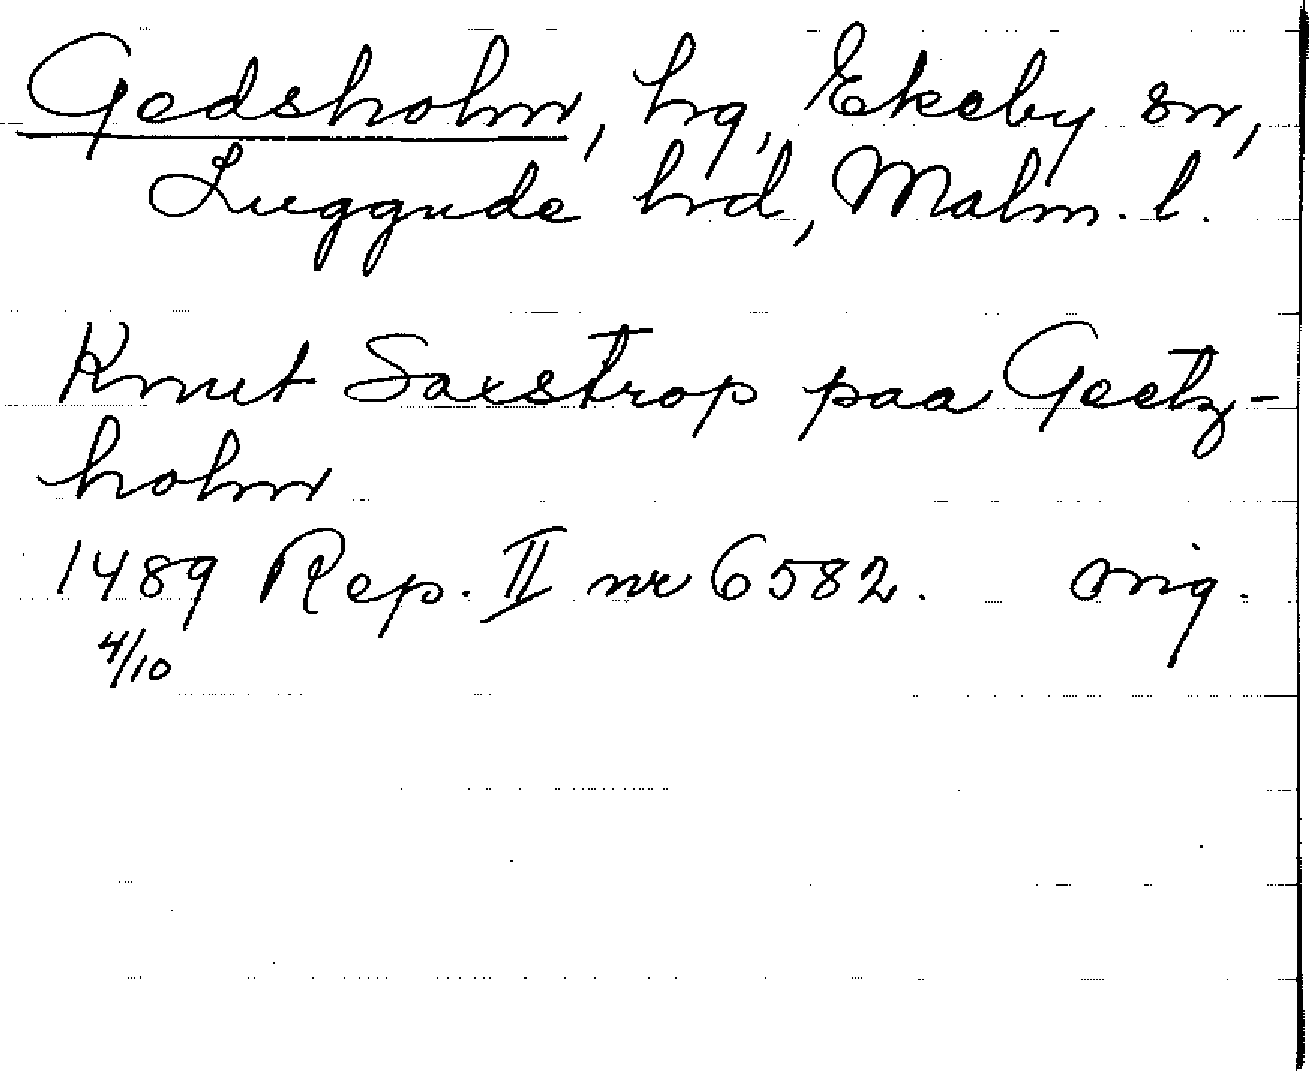 Gedsholm, hg, Ekeby sn,
Luggude hrd, Malm. l.
Knut Saxstrop paa Geetz-
holm
1489 Rep. II nr 6582. orig.
4/10